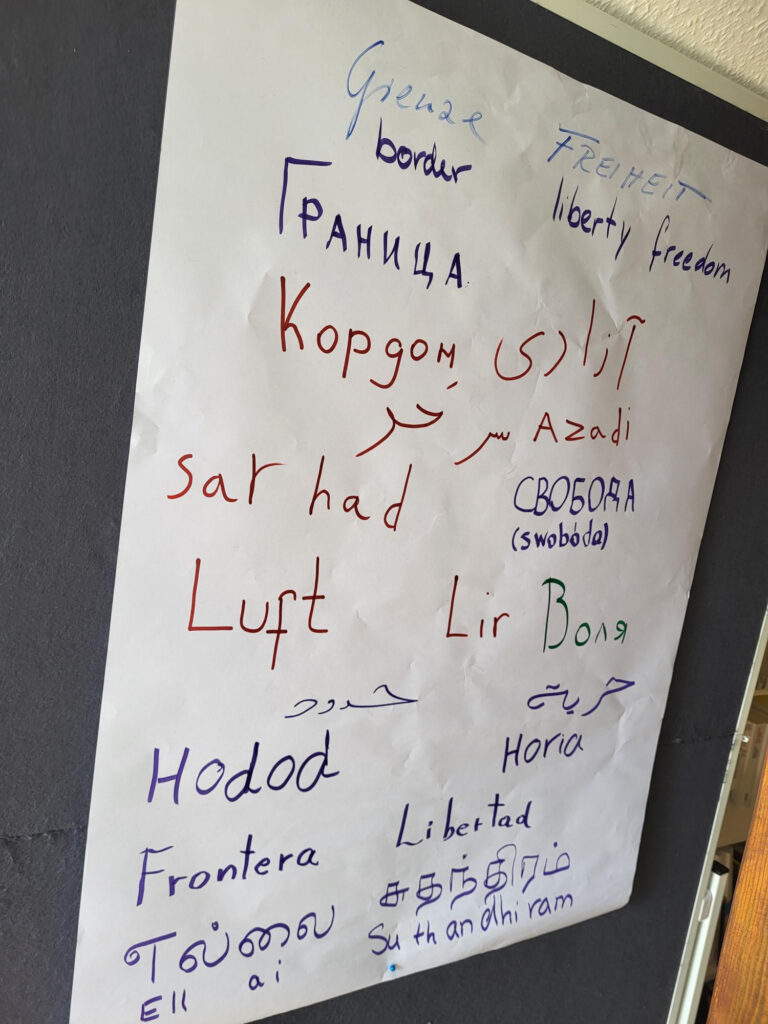 Grenze
FREIHEIT
border
liberty freedom
ГРАНИЦА
Кордон
آزادی
سر حد
Azadi
sar had
СВОБОДА
(swobóda)
Luft
Lir Воля
حدود
حرية
Hodod
Horia
Frontera
Libertad
எல்லை
சுதந்திரம்
Ell ai
Su th an dhi ram